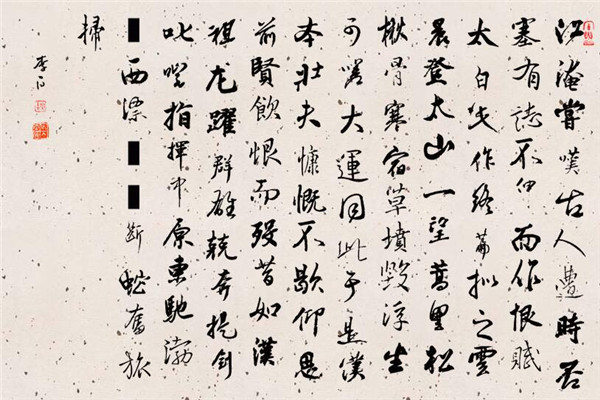 江淹嘗嘆古人遭時否
塞有誌不伸而作恨賦
太白此作終篇擬之雲
晨登太山一望蒿里松
楸骨寒宿草墳毀浮生
可嗟大運同此于是僕
本壯夫慷慨不歇仰思
前賢飲恨而歿昔如漢
祖龙躍群雄競奔提劍
叱咤指揮中原東馳渤
西漂斷蛇奮旅
掃
李白